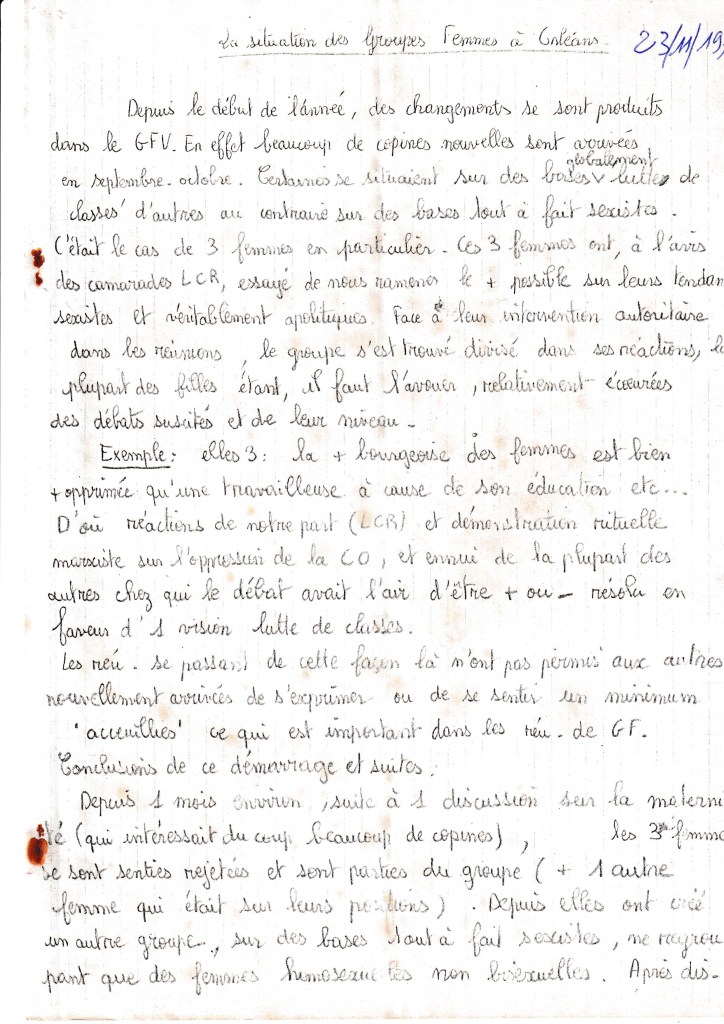 La situation des Groupes Femmes à Orléans.
23/11/19
Depuis le début de l'année, des changements se sont produits
dans le GFV. En effet beaucoup de copines nouvelles sont arrivées
en septembre-octobre. Certaines se situaient sur des bases globalement lutte de
classes d'autres au contraire sur des bases tout à fait sexistes.
C'était le cas de 3 femmes en particulier. Ces 3 femmes ont, à l'avis
des camarades LCR, essayé de nous ramener le + possible sur leurs tendan
sexistes et véritablement apolitiques. Face à leur intervention autoritaire
dans les réunions, le groupe s'est trouvé divisé dans ses réactions, la
plupart des filles étant, il faut l'avouer, relativement écoeurées
des débats suscités et de leur niveau.
Exemple: elles 3: la + bourgeoise des femmes est bien
+ opprimée qu'une travailleuse à cause de son éducation etc...
D'où réactions de notre part (LCR) et démonstration rituelle
marxiste sur l'oppression de la CO, et ennui de la plupart des
autres chez qui le débat avait l'air d'être + ou - résolu en
faveur d'1 vision lutte de classes.
Les réu. se passant de cette façon là n'ont pas permis aux autres
nouvellement arrivées de s'exprimer ou de se sentir un minimum
"acceuillies" ce qui est important dans les réu. de GF.
Conclusions de ce démarrage et suites:
Depuis 1 mois environ, suite à 1 discussion sur la materni
té (qui intéressait du coup beaucoup de copines), les 3 femme
se sont senties rejetées et sont parties du groupe (+ 1 autre
femme qui était sur leurs positions). Depuis elles ont créé
un autre groupe, sur des bases tout à fait sexistes, ne regrou
pant que des femmes homosexuelles non bisexuelles. Après dis-